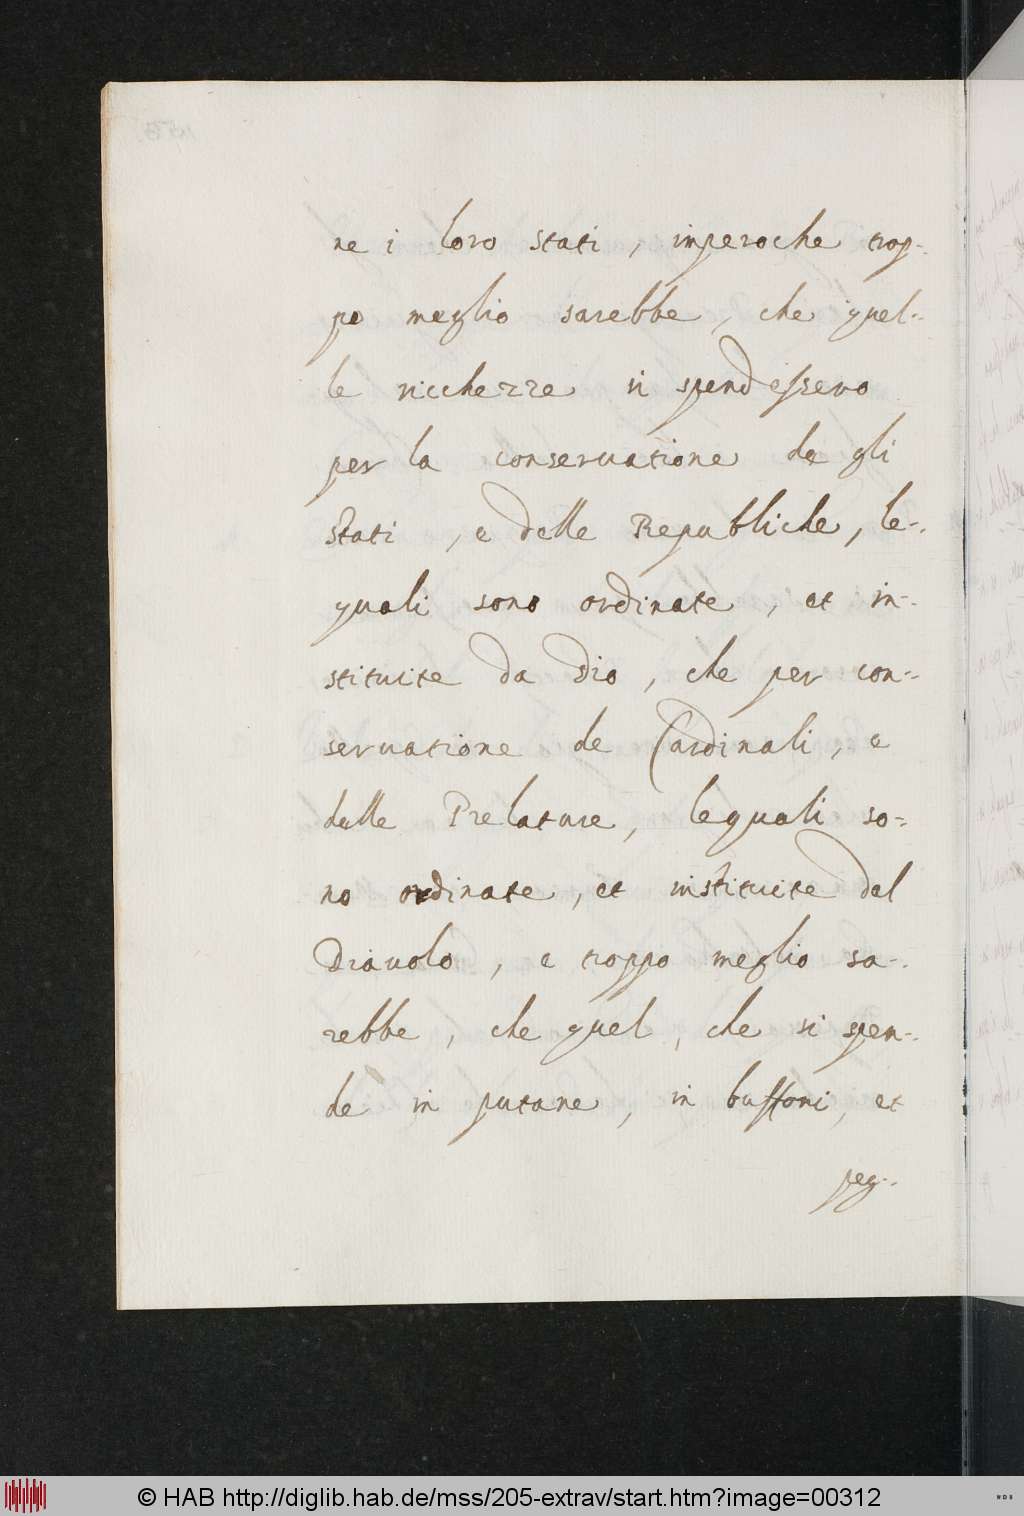 ne i loro stati, imperoche trop-
po meglio sarebbe, che quel-
le ricchezze si spendessero
per la conseruatione de gli
Stati, e delle Republiche, le-
quali sono ordinate, et in-
stituite da Dio, che per con-
seruatione de Cardinali, e
delle Prelature, lequali so-
no ordinate, et instituite dal
Diauolo, e troppo meglio sa-
rebbe, che quel, che si spen-
de in putane, in buffoni, et
peg-
© HAB http://diglib.hab.de/mss/205-extrav/start.htm?image=00312